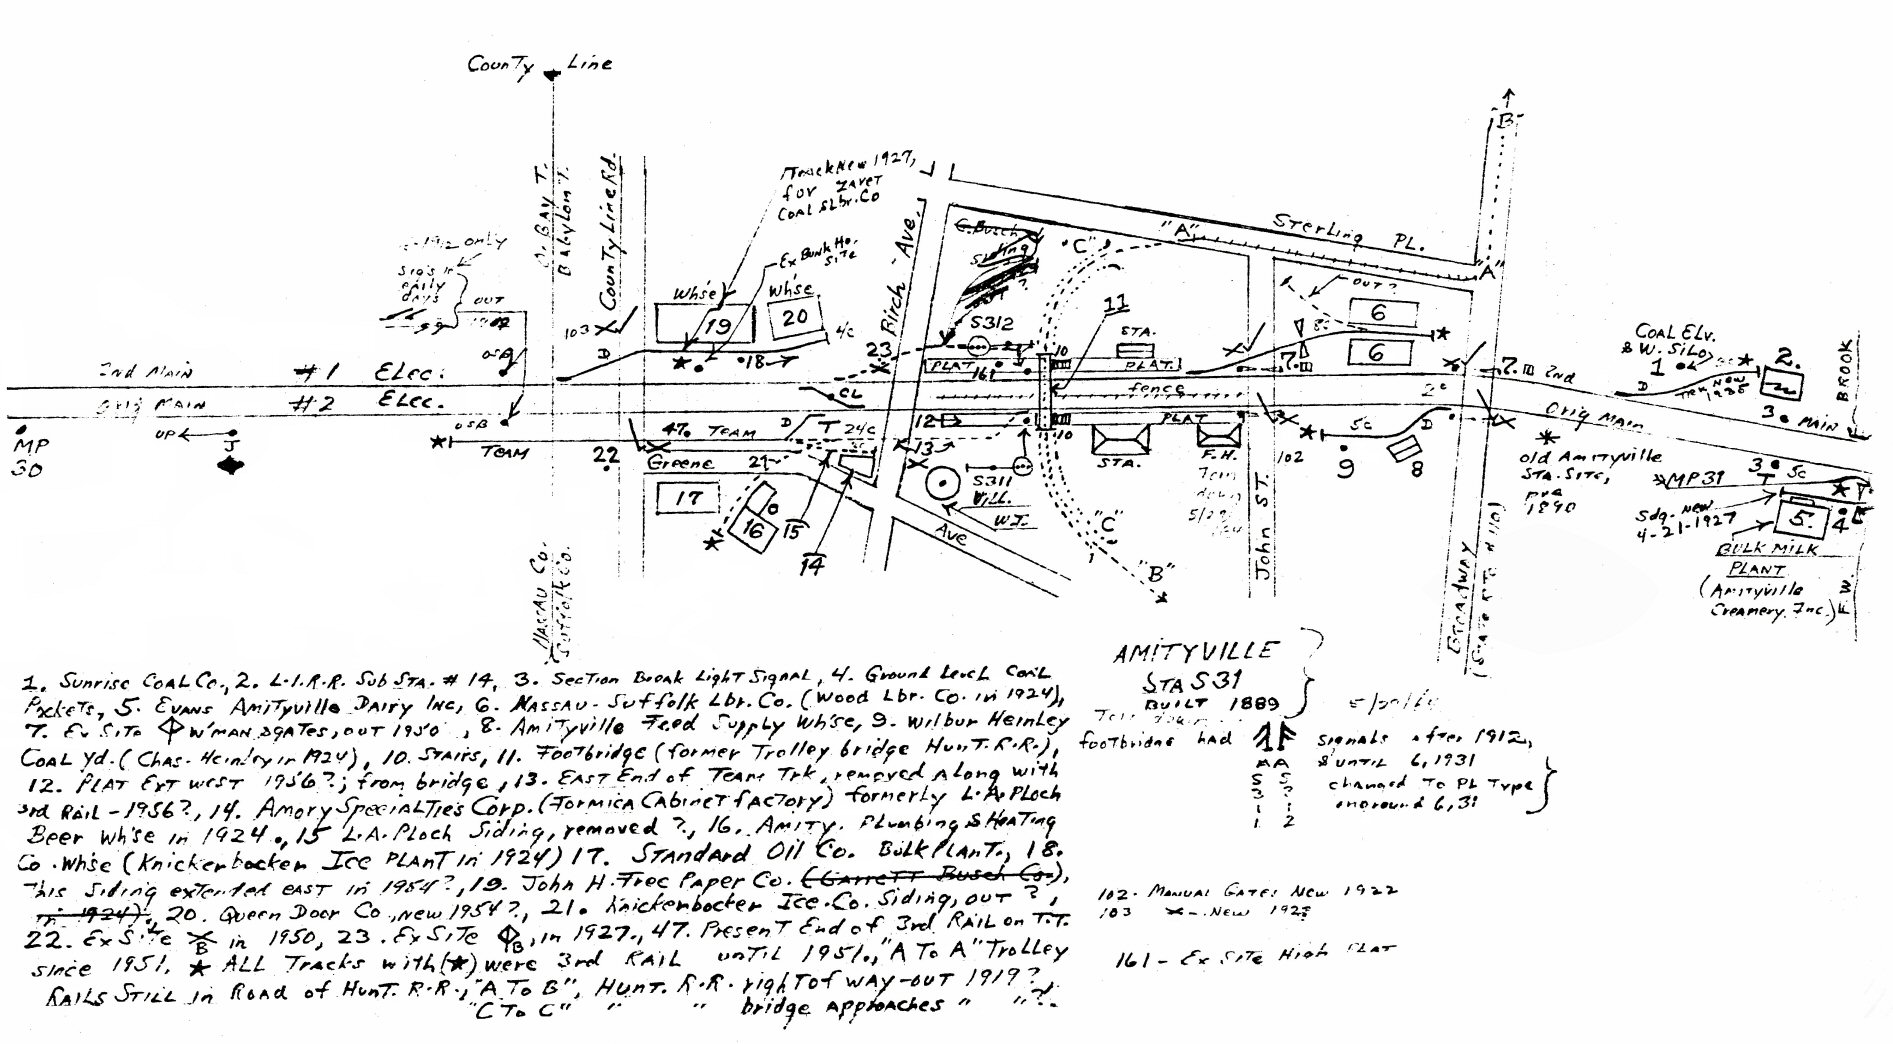 County Line
Track New 1927,
for Zavet
Coal & Lbr. Co
O. Bay T.
Babylon T.
County Line Rd.
Birch Ave.
Sterling PL.
"A"
"A"
"B"
"C"
C. Busch
Siding
1912 only
Sig's in
early
days
out
Ex Bunk Ho.
Site
Wh'se
Wh'se.
19
20
4c
103
D
18
23
S312
STA.
11
10
out?
6
6
8c
7.
7.
Coal Elv.
& W. Silo
1
2.
BROOK
2nd Main #1 Elec.
Orig Main #2 Elec.
OSB
OSB
CL
PLAT
161
PLAT.
fence
2c
2nd
D
Trk New
Orig Main
3
MAIN
MP
30
UP
J
TEAM
22
47. TEAM
D
T
24c
12
13
PLAT
10
5c
D
Greene
21
17
16
15
14
S311
Vill.
W.T.
Ave
STA.
F.H.
Torn
down
102
9
8
old Amityville
STA. Site,
pre
1890
MP31
3
T
5c
Sdg. New
4-21-1927
5.
4
BULK MILK
PLANT
(Amityville
Creamery. Inc.)
"C"
"B"
John ST.
Broadway
Nassau Co.
Suffolk Co.
AMITYVILLE
STA S31
BUILT 1889
Torn down
1. Sunrise Coal Co., 2. L.I.R.R. Sub Sta. # 14, 3. Section Break Light Signal, 4. Ground Level Coal
Pockets, 5. Evans Amityville Dairy Inc, 6. Nassau-Suffolk Lbr. Co. (Wood Lbr. Co. in 1924),
7. Ex Site W'man & Gates, out 1950, 8. Amityville Feed Supply Wh'se, 9. Wilbur Heinley
Coal Yd. (Chas. Heinley in 1924), 10. Stairs, 11. Footbridge (former Trolley bridge Hunt. R.R.),
12. Plat Ext west 1956?; from bridge, 13. East End of Team Trk, removed along with
3rd Rail - 1956?, 14. Amory Specialties Corp. (Formica Cabinet factory) formerly L.A. Ploch
Beer Wh'se in 1924., 15 L.A. Ploch Siding, removed ?, 16. Amity. Plumbing & Heating
Co. Wh'se (Knickerbocker Ice Plant in 1924) 17. Standard Oil Co. Bulk Plant., 18.
This Siding extended east in 1954?, 19. John H. Free Paper Co. (Garrett Busch Co.),
in 1924)., 20. Queen Door Co, new 1954?, 21. Knickerbocker Ice. Co. Siding, out ?,
22. Ex Site X B in 1950, 23. Ex Site B, in 1927., 47. Present End of 3rd Rail on T.T.
since 1951, ★ All Tracks with (★) were 3rd Rail until 1951., "A To A" Trolley
Rails Still in Road of Hunt. R.R., "A To B", Hunt. R.R. right of way - out 1919?
"C To C" " " bridge approaches " "?.
footbridge had signals after 1912,
& until 6, 1931
changed to PL Type
around 6, 31
AA
S S
3 ?
1 1
1 2
102. Manual Gates New 1922
103 X - New
161 - Ex Site High Plat